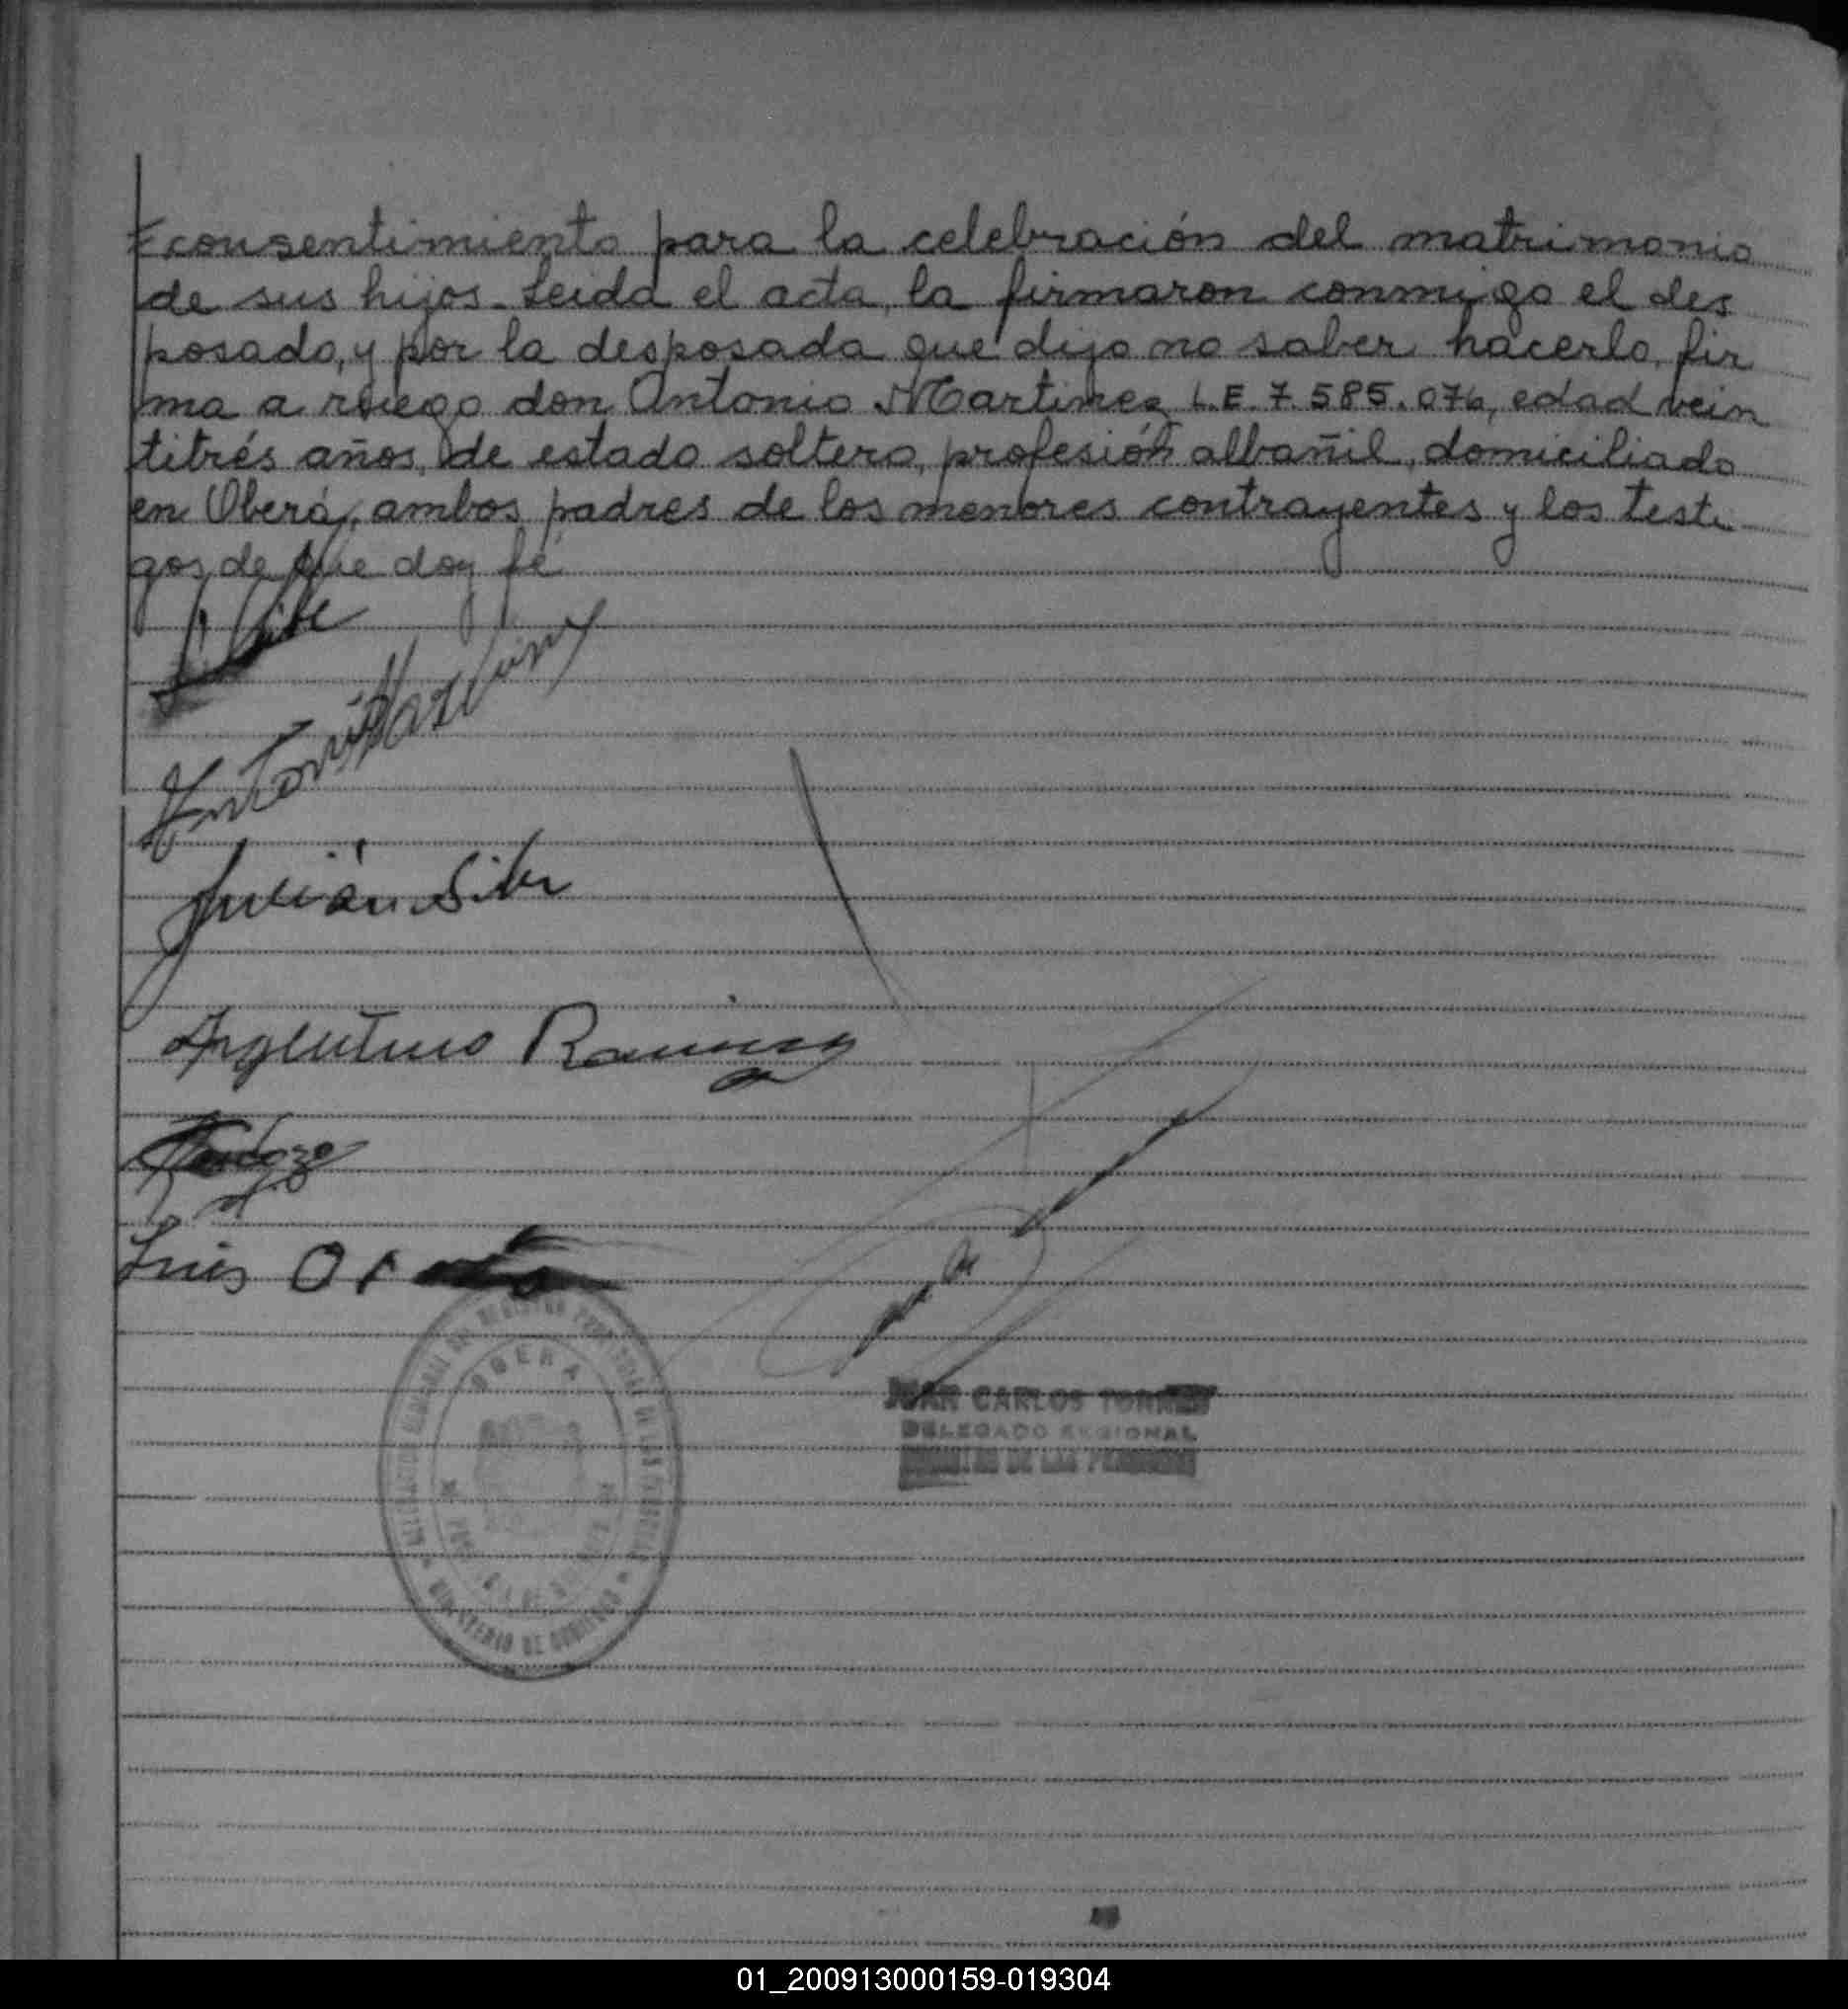 consentimiento para la celebración del matrimonio
de sus hijos. Leida el acta, la firmaron conmigo el des
posado, y por la desposada que dijo no saber hacerlo, fir
ma a ruego don Antonio Martinez L.E. 7.585.076, edad vein
titrés años, de estado soltero, profesión albañil, domiciliado
en Oberá, ambos padres de los menores contrayentes y los testi
gos, de que doy fé
Antonio Martinez
Julián Silv
Argentino Ramirez
Luis
OBERA
MINISTERIO DE GOBIERNO
JUAN CARLOS TORRES
DELEGADO REGIONAL
REGISTRO DE LAS PERSONAS
01_200913000159-019304